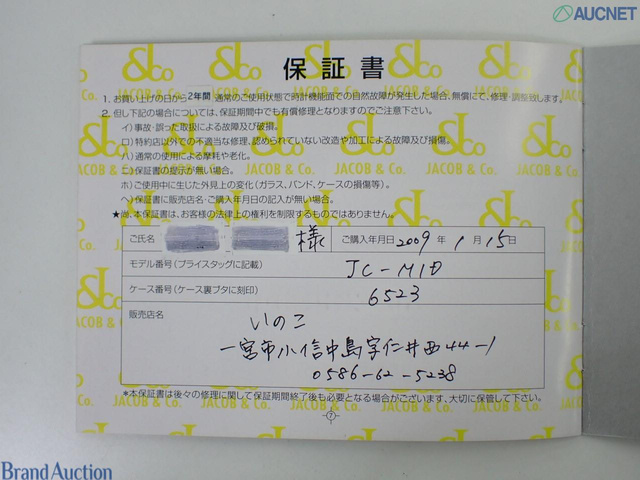 AUCNET
保証書
1. お買い上げの日から2年間 通常のご使用状態で時計機能面での自然故障が発生した場合、無償にて、修理・調整致します。
2. 但し下記の場合については、保証期間中でも有償修理となりますのでご注意下さい。
イ)事故・誤った取扱による故障及び破損。
ロ)特約店以外での不適当な修理、認められていない改造や加工による故障及び損傷。
ハ)通常の使用による摩耗や老化。
ニ)保証書の提示が無い場合。
ホ)ご使用中に生じた外見上の変化(ガラス、バンド、ケースの損傷等)。
ヘ)保証書に販売店名・ご購入年月日の記入が無い場合。
★尚、本保証書は、お客様の法律上の権利を制限するものではありません。
ご氏名 様 ご購入年月日 2009年 1月 15日
モデル番号(プライスタッグに記載) JC-M10
ケース番号(ケース裏ブタに刻印) 6523
販売店名
いのこ
一宮市小信中島字仁井西44-1
0586-62-5238
*本保証書は後々の修理に関して保証期間終了後も必要となる場合がございます、大切に保管して下さい。
7
JACOB & Co.
Brand Auction